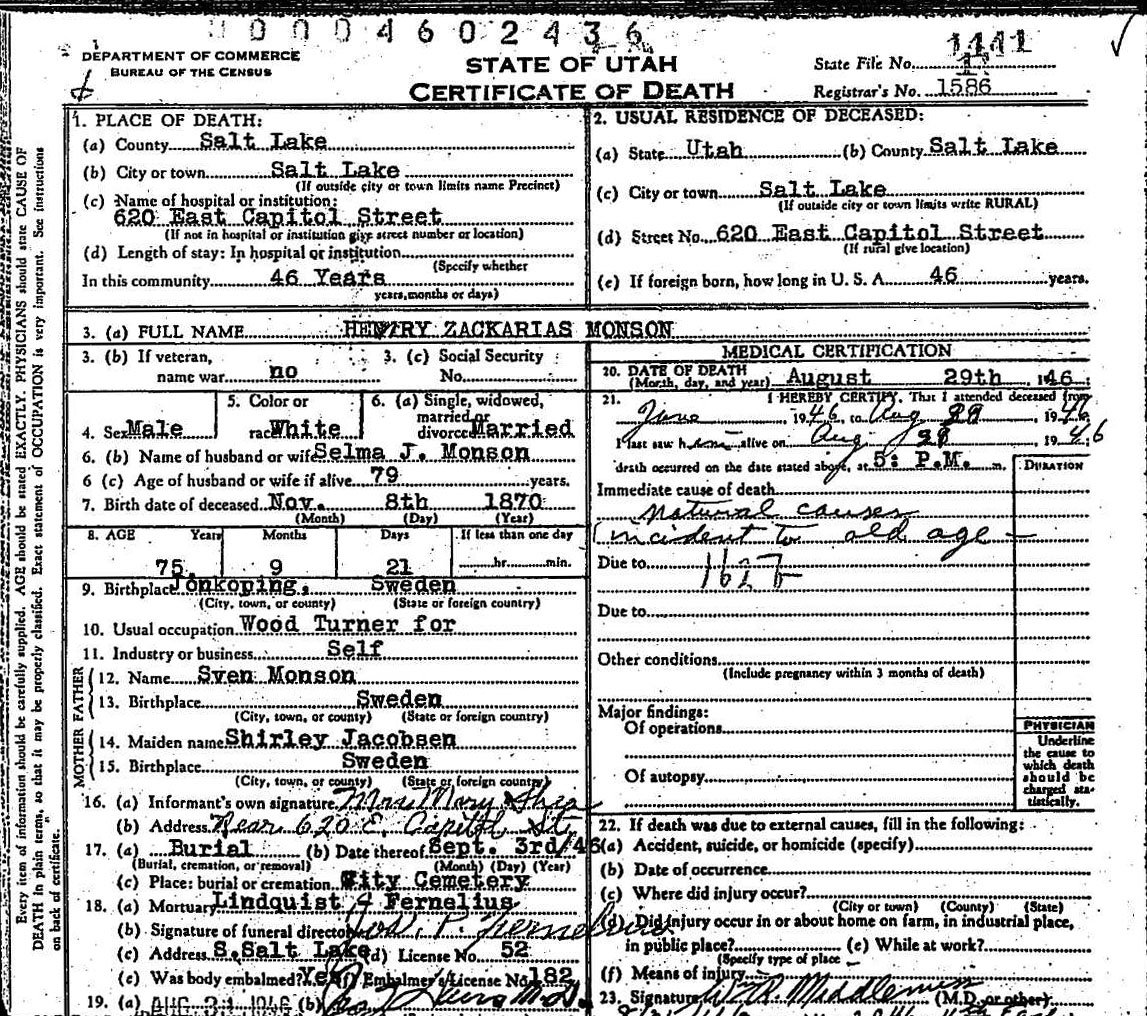 0004602436
DEPARTMENT OF COMMERCE
BUREAU OF THE CENSUS
STATE OF UTAH
CERTIFICATE OF DEATH
State File No. 1441
Registrar's No. 1586
Every item of information should be carefully supplied. AGE should be stated EXACTLY. PHYSICIANS should state CAUSE OF
DEATH in plain terms, so that it may be properly classified. Exact statement of OCCUPATION is very important. See instructions
on back of certificate.
1. PLACE OF DEATH:
(a) County Salt Lake
(b) City or town Salt Lake
(If outside city or town limits name Precinct)
(c) Name of hospital or institution:
620 East Capitol Street
(If not in hospital or institution give street number or location)
(d) Length of stay: In hospital or institution
(Specify whether
In this community 46 Years
years, months or days)
2. USUAL RESIDENCE OF DECEASED:
(a) State Utah (b) County Salt Lake
(c) City or town Salt Lake
(If outside city or town limits write RURAL)
(d) Street No. 620 East Capitol Street
(If rural give location)
(e) If foreign born, how long in U. S. A. 46 years.
3. (a) FULL NAME HENRY ZACKARIAS MONSON
3. (b) If veteran,
name war no
3. (c) Social Security
No.
4. Sex Male
5. Color or
race White
6. (a) Single, widowed,
married or
divorced Married
6. (b) Name of husband or wife Selma J. Monson
6 (c) Age of husband or wife if alive 79 years.
7. Birth date of deceased Nov. 8th 1870
(Month) (Day) (Year)
8. AGE Years Months Days If less than one day
75 9 21 hr. min.
9. Birthplace Jonkoping, Sweden
(City, town, or county) (State or foreign country)
10. Usual occupation Wood Turner for
11. Industry or business Self
FATHER
12. Name Sven Monson
13. Birthplace Sweden
(City, town, or county) (State or foreign country)
MOTHER
14. Maiden name Shirley Jacobsen
15. Birthplace Sweden
(City, town, or county) (State or foreign country)
16. (a) Informant's own signature Mrs Mary Shea
(b) Address Rear 620 E. Capitol St
17. (a) Burial (b) Date thereof Sept. 3rd/46
(Burial, cremation, or removal) (Month) (Day) (Year)
(c) Place: burial or cremation City Cemetery
18. (a) Mortuary Lindquist & Fernelius
(b) Signature of funeral director P. Fernelius
(c) Address S. Salt Lake (d) License No. 52
(e) Was body embalmed? Yes (f) Embalmer's License No. 182
19. (a) AUG 31 1946 (b)
MEDICAL CERTIFICATION
20. DATE OF DEATH
(Month, day, and year) August 29th 1946
21. I HEREBY CERTIFY, That I attended deceased from
June 1946 to Aug 29 1946
I last saw him alive on Aug. 1946
death occurred on the date stated above, at 5: P.M. m.
DURATION
Immediate cause of death
natural causes
incident to old age
Due to
Due to
Other conditions
(Include pregnancy within 3 months of death)
Major findings:
Of operations
Of autopsy
PHYSICIAN
Underline
the cause to
which death
should be
charged sta-
tistically.
22. If death was due to external causes, fill in the following:
(a) Accident, suicide, or homicide (specify)
(b) Date of occurrence
(c) Where did injury occur?
(City or town) (County) (State)
(d) Did injury occur in or about home on farm, in industrial place,
in public place? (e) While at work?
(Specify type of place
(f) Means of injury
23. Signature (M.D. or other)